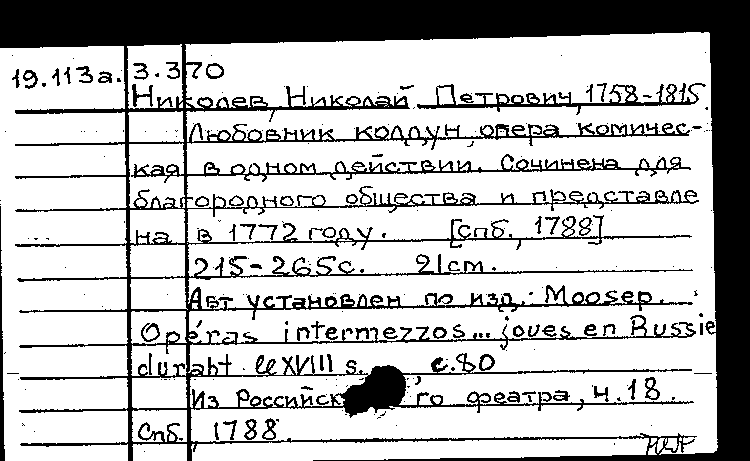 19.113а. 3.370
Николев, Николай Петрович, 1758-1815.
Любовник колдун, опера комичес-
кая в одном действии. Сочинена для
благородного общества и представле
на в 1772 году. [Спб., 1788]
215-265с. 21см.
Авт установлен по изд.: Моosер.
Opéras intermezzos... joues en Russie
durant le XVIII s. , с.80
Из Российск го феатра, ч.18.
Спб., 1788.